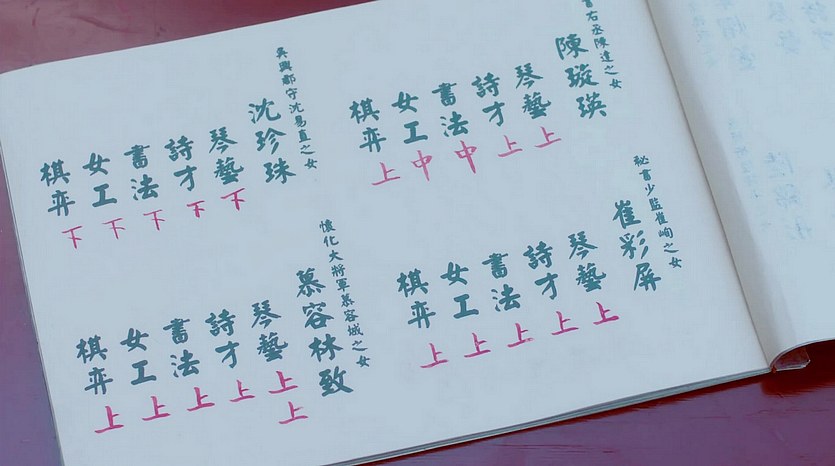 書右丞陳達之女
陳璇瑛
琴藝上
詩才上
書法中
女工中
棋弈上
吳興郡守沈易直之女
沈珍珠
琴藝下
詩才下
書法下
女工下
棋弈下
秘書少監崔峋之女
崔彩屏
琴藝上
詩才上
書法上
女工上
棋弈上
懷化大將軍慕容城之女
慕容林致
琴藝上上
詩才上
書法上
女工上
棋弈上